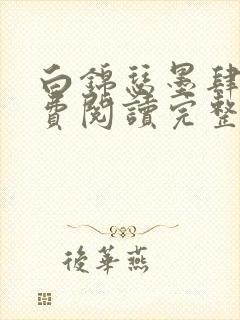 白錦瑟墨肆
費閱讀完整
後華燕